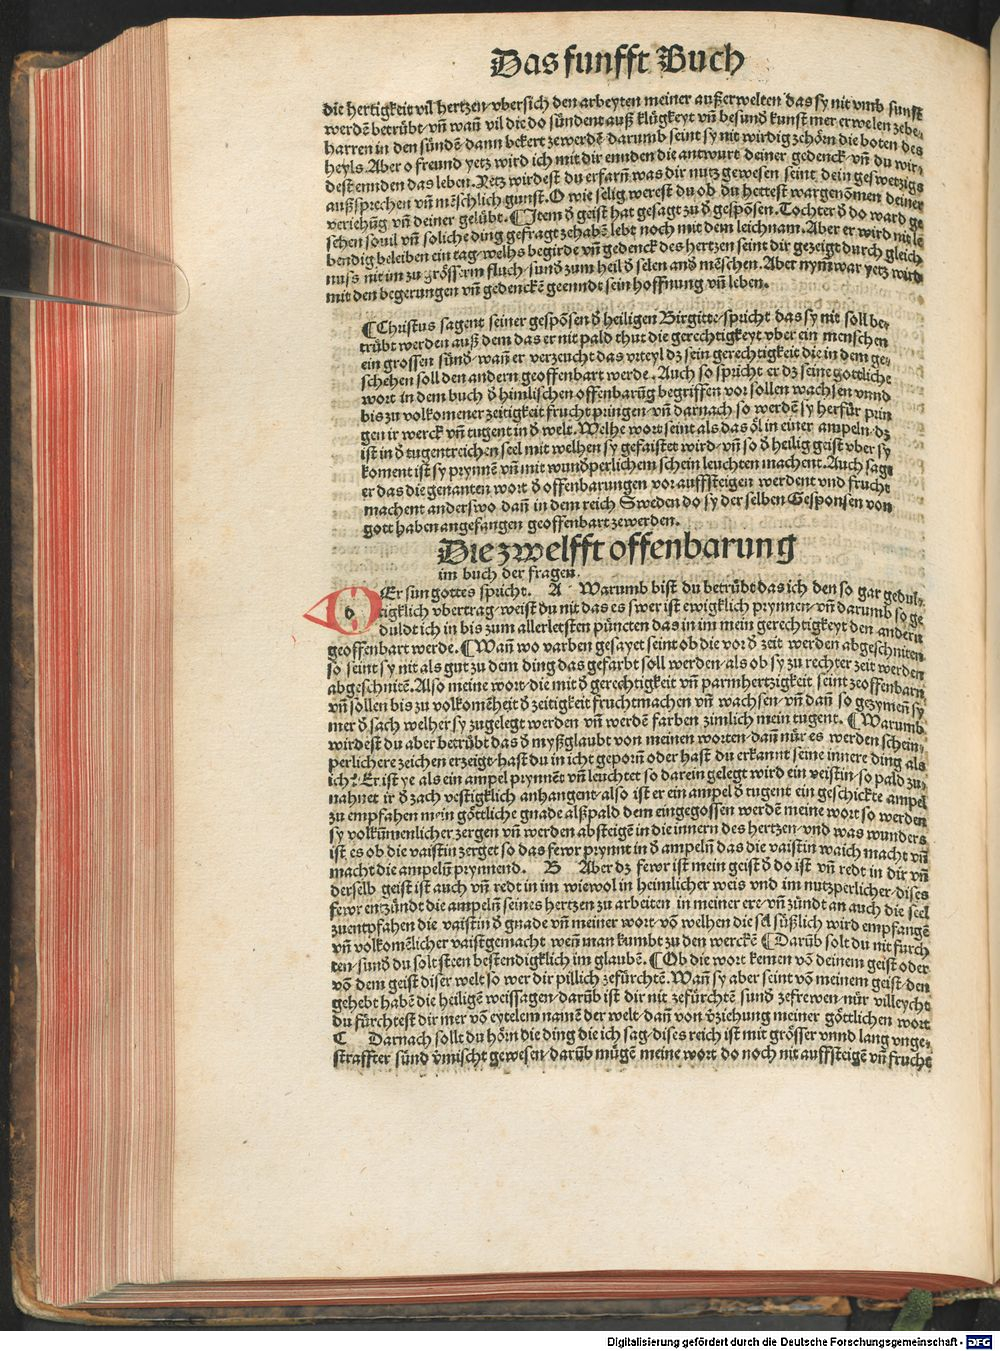 Das funfft Buch
die hertigkeit vil hertzen vbersich den arbeyten meiner außerwelten das sy nit vmb sunst
werdē betrübt vñ wañ vil die do sündent auß klůgkeyt vñ besund kunst mer erwelen zebe-
harren in den sündē dann bekert zewerdē darumb seint sy nit wirdig zehörn die boten des
heyls. Aber o freund yetz wird ich mit dir ennden die antwurt deiner gedenck vñ du wir-
dest ennden das leben. Yetz wirdest du erfarñ was dir nutz gewesen seint dein geswetzigs
außsprechen vñ mēschlich gunst. O wie selig werest du ob du hettest wargenōmen deiner
veriehūg vñ deiner gelübt. ¶ Item d̄ geist hat gesagt zu d̄ gespōsen. Tochter d̄ do ward ge
schen souil vñ soliche ding gefragt zehabē lebt noch mit dem leichnam. Aber er wird nit le
bendig beleiben ein tag welhs begirde vñ gedenck des hertzen seint dir gezeigt durch gleich
nuss nit im zu grösserm fluch sund zum heil d̄ selen and mēschen. Aber nym war yetz wird
mit den begerungen vñ gedenckē geenndt sein hoffnung vñ leben.
¶ Christus sagent seiner gespōsen d̄ heiligen Birgitte spricht das sy nit soll be-
trübt werden auß dem das er nit pald thut die gerechtigkeyt vber ein menschen
ein grossen sünd wañ er verzeucht das vrteyl dz sein gerechtigkeit die in dem ge-
schehen soll den andern geoffenbart werde. Auch so spricht er dz seine gottliche
wort in dem buch d̄ himlischen offenbarūg begriffen vor sollen wachsen vnnd
bis zu volkomener zeitigkeit frucht pringen vñ darnach so werdē sy herfür prin
gen ir werck vñ tugent in d̄ welt. Welhe wort seint als das öl in einer ampeln dz
ist in d̄ tugentreichen seel mit welhen sy gefaistet wird vñ so d̄ heilig geist vber sy
koment ist sy prynnē vñ mit wundperlichem schein leuchten machent. Auch sagt
er das die genanten wort d̄ offenbarungen vor auffsteigen werdent vnd frucht
machent anderswo dañ in dem reich Sweden do sy der selben Gesponsen von
gott haben angefangen geoffenbart zewerden.
Die zwelfft offenbarung
im buch der fragen.
dEr sun gottes spricht. A Warumb bist du betrübt das ich den so gar gedul-
tigklich vbertrag weist du nit das es swer ist ewigklich prynnen vñ darumb so ge
duldt ich in bis zum allerletsten püncten das in im mein gerechtigkeyt den andern
geoffenbart werde. ¶ Wañ wo varben gesayet seint ob die vor d̄ zeit werden abgeschniten
so seint sy nit als gut zu dem ding das gefarbt soll werden als ob sy zu rechter zeit werden
abgeschnitē. Also meine wort die mit d̄ gerechtigkeit vñ parmhertzigkeit seint zeoffenbarñ
vñ sollen bis zu volkomēheit d̄ zeitigkeit fruchtmachen vñ wachsen vñ dañ so gezymeñ sy
mer d̄ sach welher sy zugelegt werden vñ werdē farben zimlich mein tugent. ¶ Warumb
wirdest du aber betrübt das d̄ myßglaubt von meinen worten dañ nür es werden schein-
perlichere zeichen erzeigt hast du in icht geporñ oder hast du erkannt seine innere ding als
ich? Er ist ye als ein ampel prynnēt vñ leuchtet so darein gelegt wird ein veistin so pald zu-
nahnet ir d̄ zach vestigklich anhangent also ist er ein ampel d̄ tugent ein geschickte ampel
zu empfahen mein göttliche gnade alßpald dem eingegossen werdē meine wort so werden
sy volkūmenlicher zergen vñ werden absteigē in die innern des hertzen vnd was wunders
ist es ob die vaistin zerget so das fewr prynnt in d̄ ampelñ das die vaistin waich macht vñ
macht die ampelñ prynnend. B Aber dz fewr ist mein geist d̄ do ist vñ redt in dir vñ
derselb geist ist auch vñ redt in im wiewol in heimlicher weis vnd im nutzperlicher dises
fewr entzündt die ampelñ seines hertzen zu arbeiten in meiner ere vñ zündt an auch die seel
zuentpfahen die vaistin d̄ gnade vñ meiner wort vō welhen die sel süßlich wird empfangē
vñ volkomēlicher vaistgemacht weñ man kumbt zu den werckē ¶ Darūb solt du nit furch
ten sund du solt steen bestendigklich im glaubē. ¶ Ob die wort kemen vō deinem geist oder
vō dem geist diser welt so wer dir pillich zefürchtē. Wañ sy aber seint vō meinem geist den
gehebt habē die heiligē weissagen darūb ist dir nit zefürchtē sund zefrewen nür villeycht
du fürchtest dir mer vō eytelem namē der welt dañ von v̄ziehung meiner göttlichen wort
C Darnach sollt du hörn die ding die ich sag dises reich ist mit grösser vnnd lang vnge-
straffter sünd v̄mischt gewesen darūb mügē meine wort do noch nit auffsteigē vñ frucht
Digitalisierung gefördert durch die Deutsche Forschungsgemeinschaft - DFG